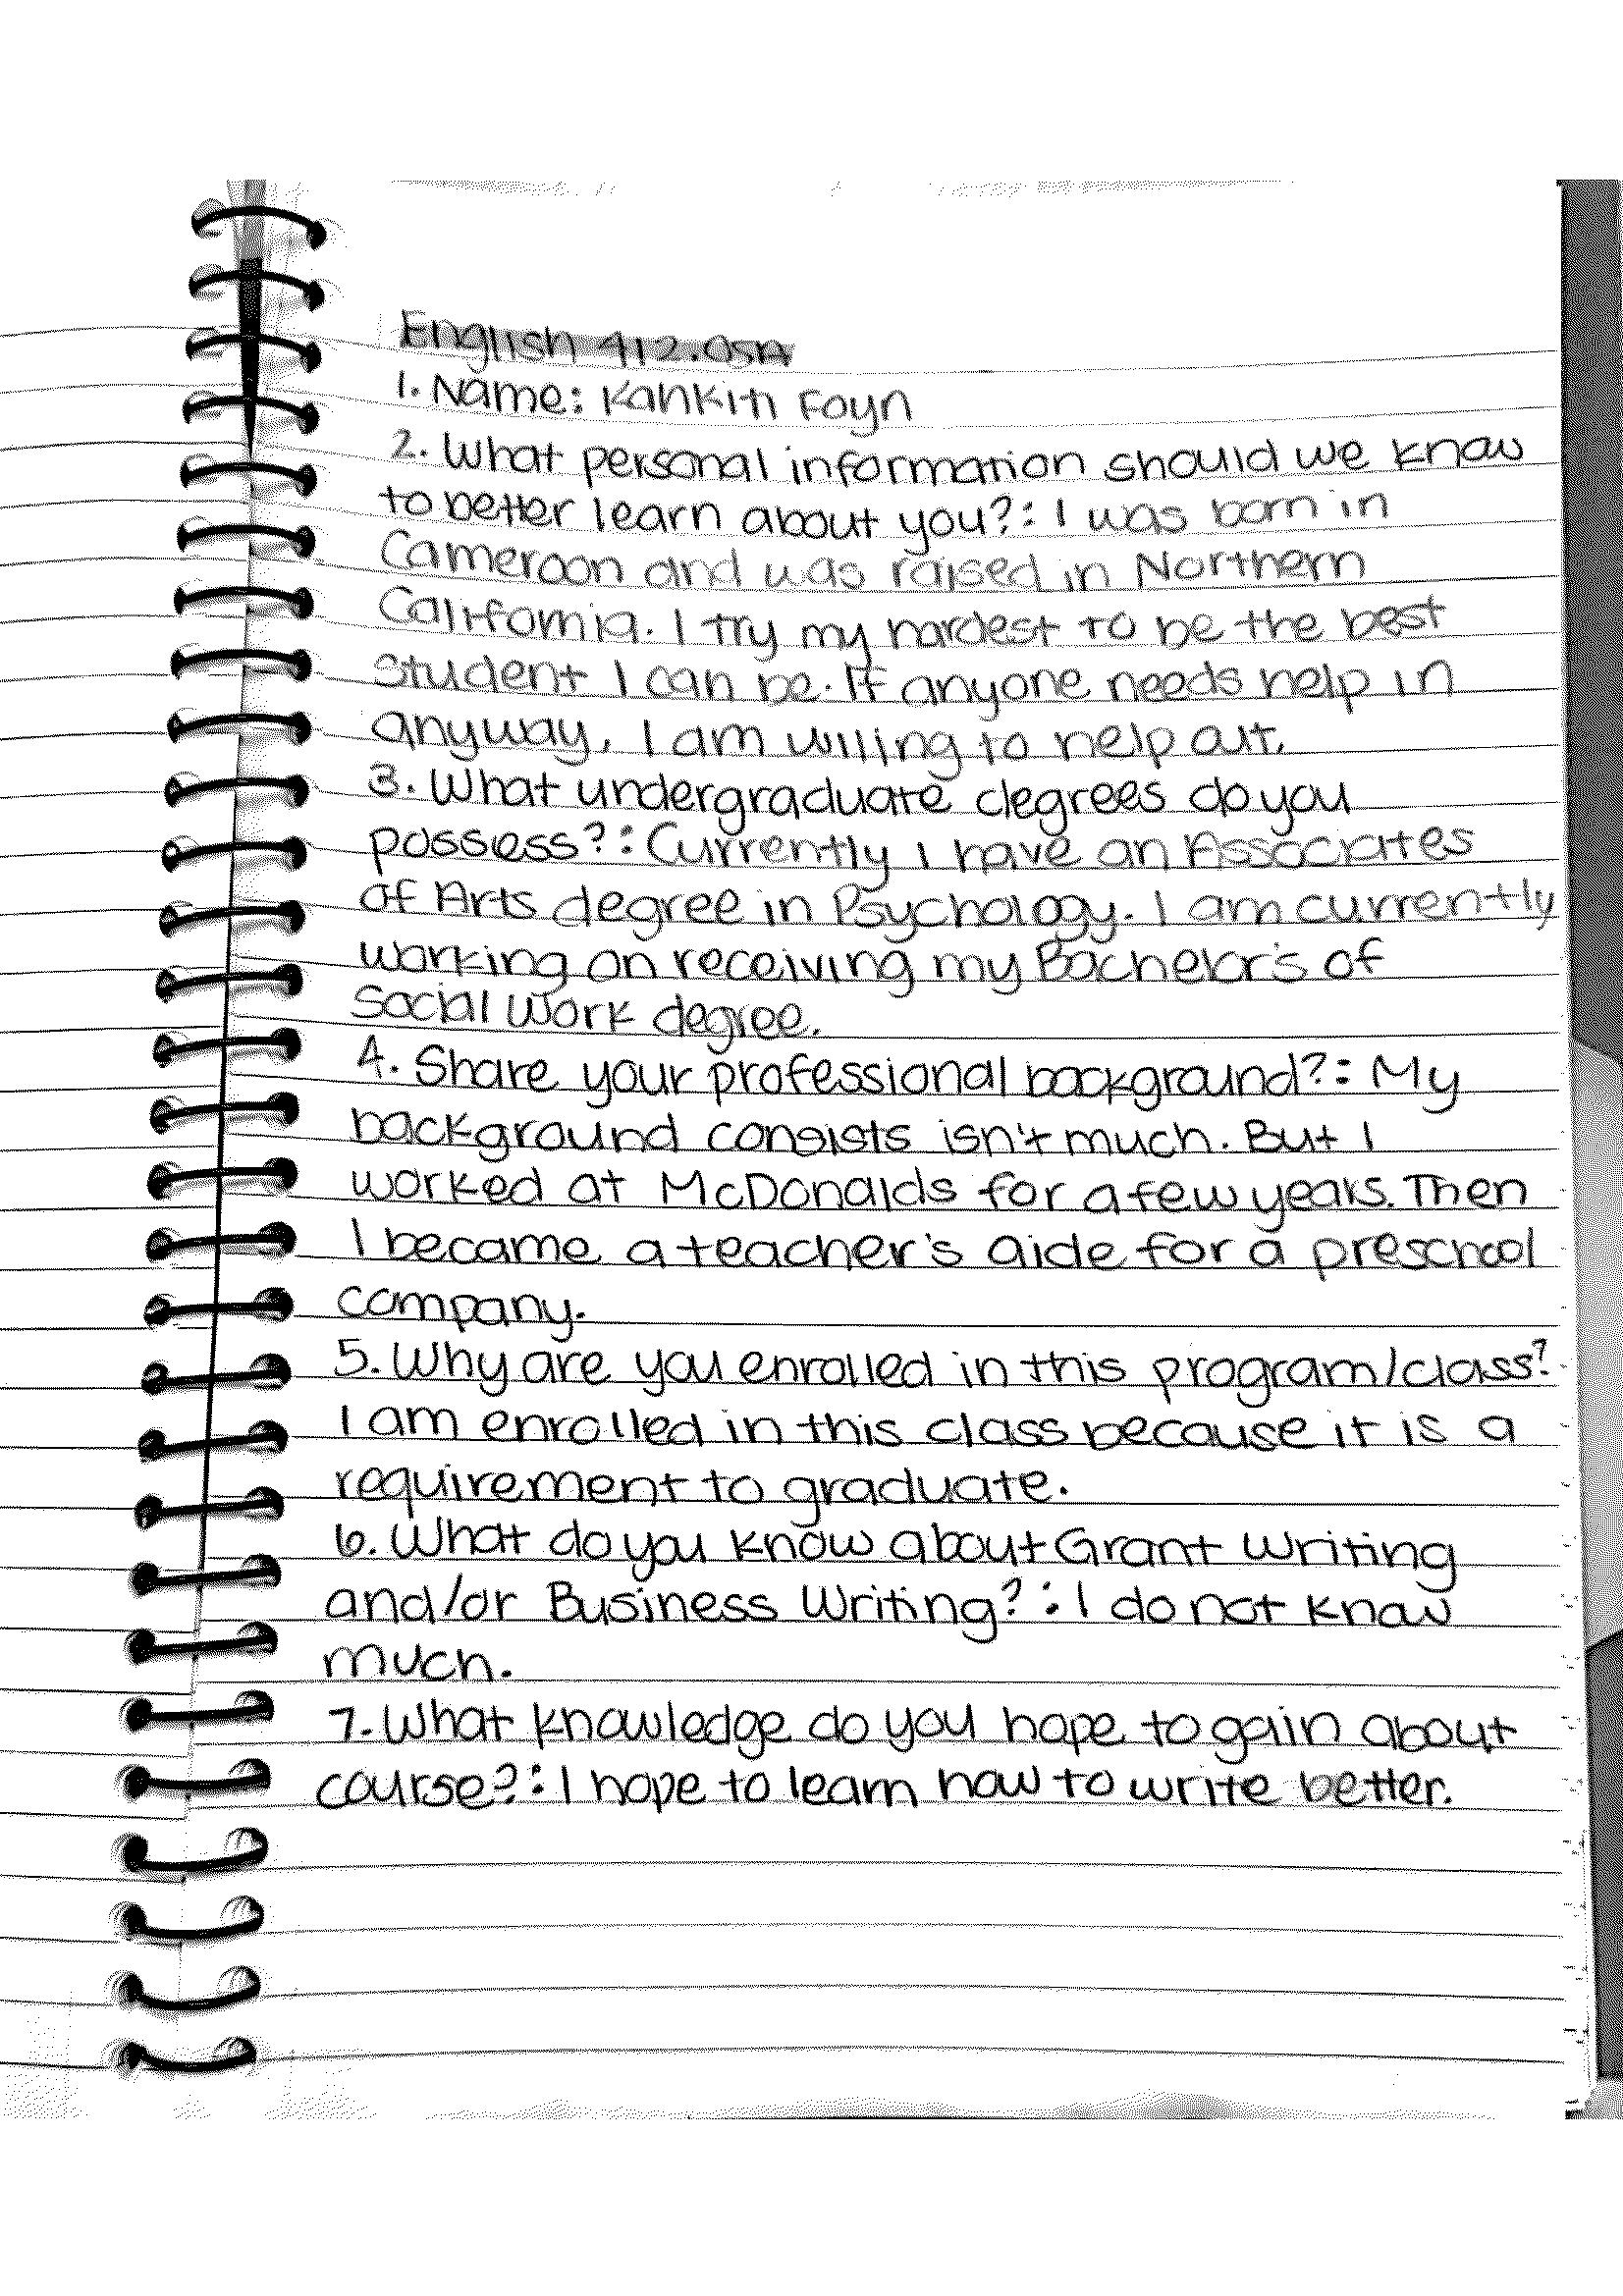 English 412.05A
1. Name: Kahkiti Foyn
2. What personal information should we know
to better learn about you?: I was born in
Cameroon and was raised in Northern
California. I try my hardest to be the best
student I can be. If anyone needs help in
anyway, I am willing to help out.
3. What undergraduate degrees do you
possess?: Currently I have an Associates
of Arts degree in Psychology. I am currently
working on receiving my Bachelor's of
Social Work degree.
4. Share your professional background?: My
background consists isn't much. But I
worked at McDonalds for a few years. Then
I became a teacher's aide for a preschool
company.
5. Why are you enrolled in this program/class?
I am enrolled in this class because it is a
requirement to graduate.
6. What do you know about Grant Writing
and/or Business Writing?: I do not know
much.
7. What knowledge do you hope to gain about
course?: I hope to learn how to write better.